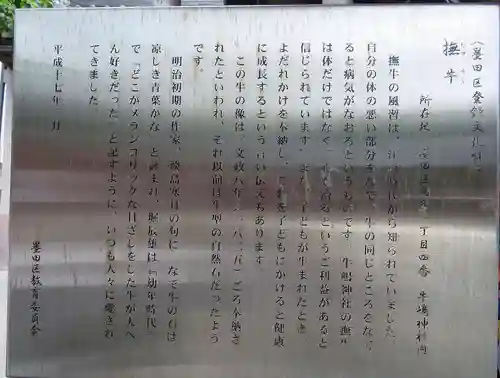 (墨田区登録文化財)
撫牛
所在地 墨田区 丁目四番 牛嶋神社内
撫牛の風習は、江戸時代から知られていました。
自分の体の悪い部分を撫で、牛の同じところをなで
ると病気がなおるというものです。牛嶋神社の撫牛
は体だけではなく、心も治るというご利益があると
信じられています。また、子どもが生まれたとき
よだれかけを奉納し、これを子どもにかけると健康
に成長するという言い伝えもあります。
この牛の像は、文政八年(一八二五)ごろ奉納さ
れたといわれ、それ以前は牛型の自然石だったよう
です。
明治初期の作家、淡島寒月の句に「なで牛の石は
涼しき青葉かな」と詠まれ、堀辰雄は『幼年時代』
で「どこかメランコリックな目ざしをした牛が大へ
ん好きだった」と記すように、いつも人々に愛され
てきました
平成十七年 月
墨田区教育委員会